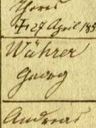 27 April 185
Währer
Georg
Andreas